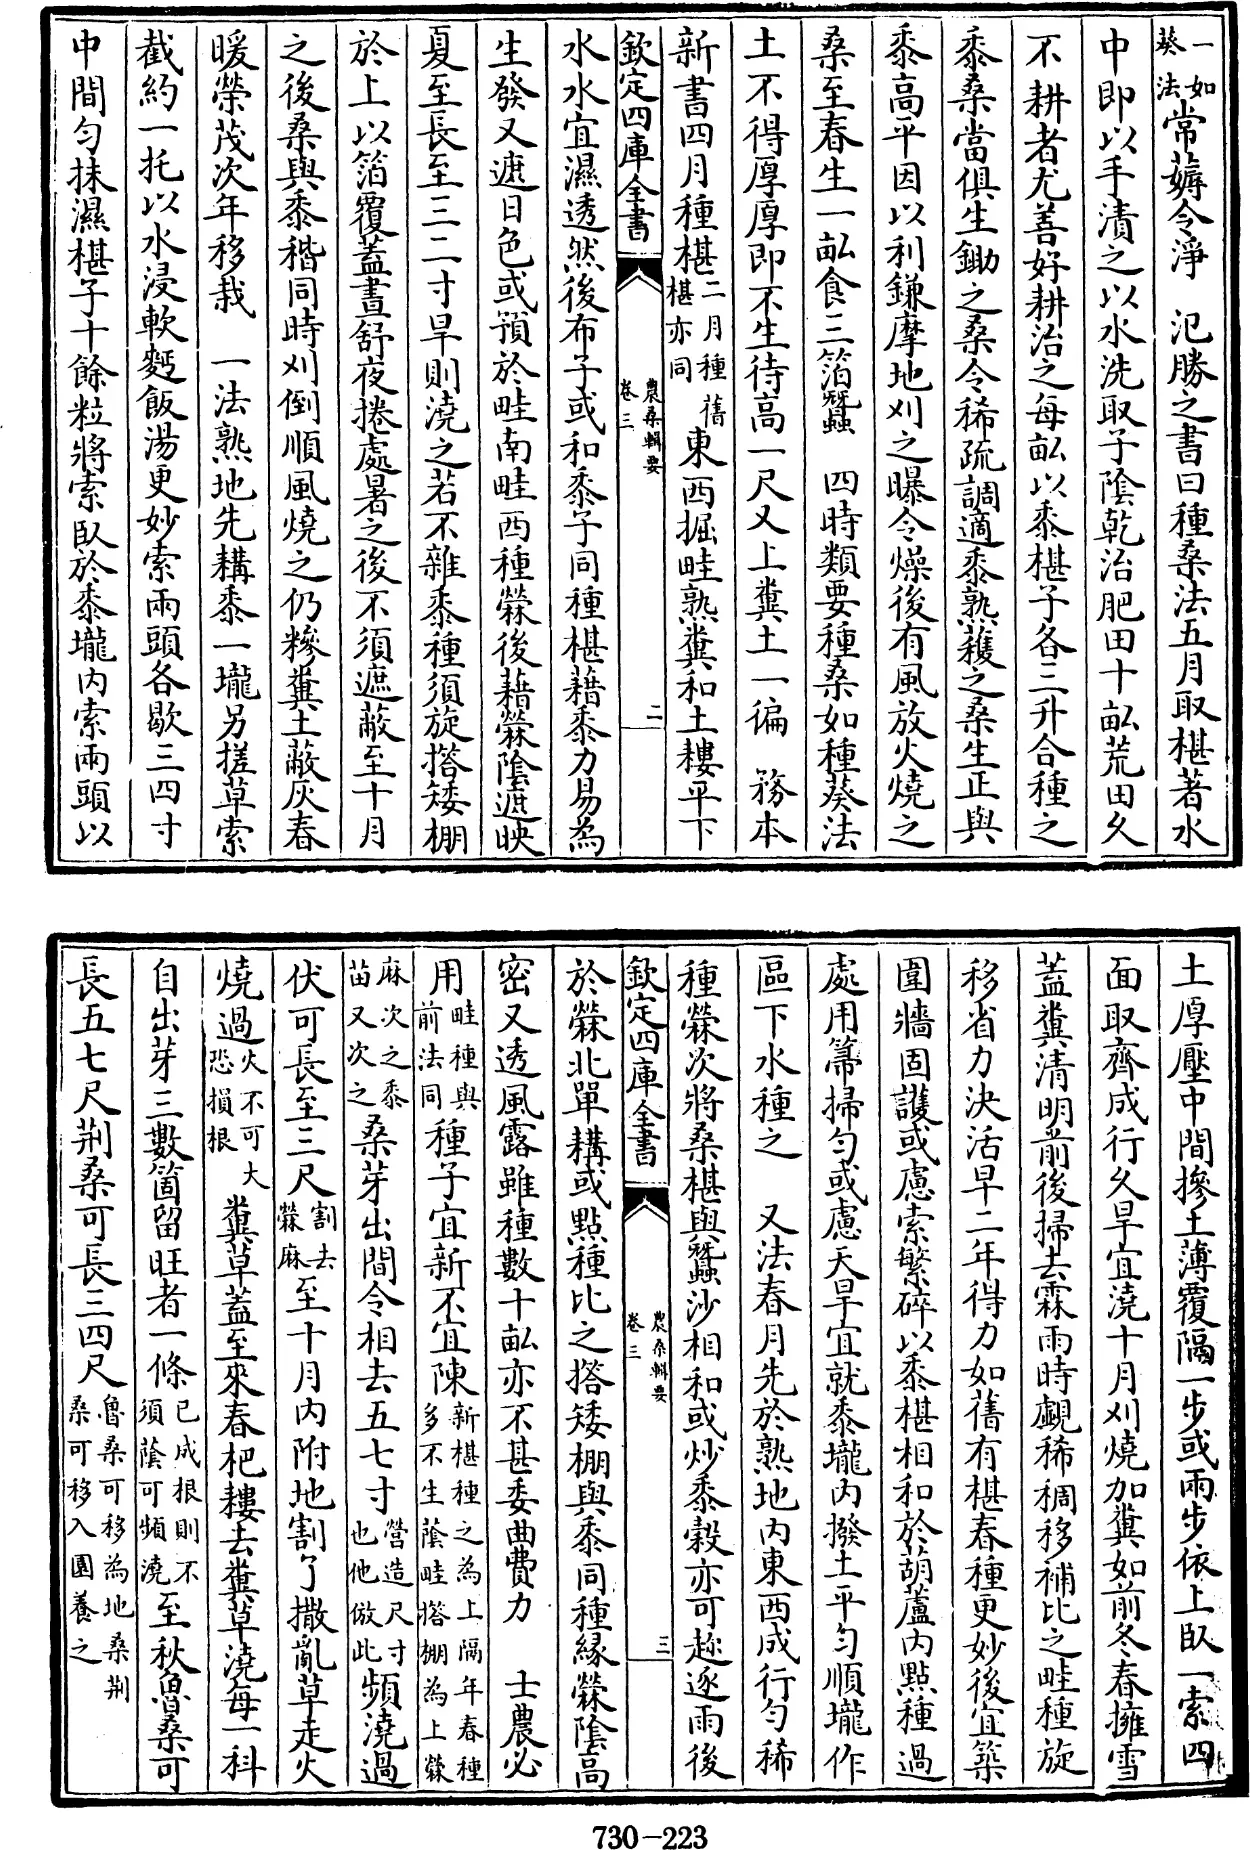 一如葵法常薅令淨　氾勝之書曰種桑法五月取椹著水
中即以手漬之以水洗取子陰乾治肥田十畝荒田久
不耕者尤善好耕治之每畝以黍椹子各三升合種之
黍桑當俱生鋤之桑令稀疏調適黍熟穫之桑生正與
黍高平因以利鎌摩地刈之曝令燥後有風放火燒之
桑至春生一畝食三箔蠶　四時類要種桑如種葵法
土不得厚厚即不生待高一尺又上糞土一徧　務本
新書四月種椹二月種舊椹亦同東西掘畦熟糞和土耬平下
欽定四庫全書　農桑輯要卷三　二
水水宜濕透然後布子或和黍子同種椹藉黍力易為
生發又遮日色或預於畦南畦西種䔛後藉䔛陰遮映
夏至長至三二寸旱則澆之若不雜黍種須旋搭矮棚
於上以箔覆蓋晝舒夜捲處暑之後不須遮蔽至十月
之後桑與黍稭同時刈倒順風燒之仍糝糞土蔽灰春
暖榮茂次年移栽　一法熟地先耩黍一壠另搓草索
截約一托以水浸軟麫飯湯更妙索兩頭各歇三四寸
中間匀抹濕椹子十餘粒將索臥於黍壠内索兩頭以
土厚壓中間摻土薄覆隔一步或兩步依上臥一索四
面取齊成行久旱宜澆十月刈燒加糞如前冬春擁雪
蓋糞清明前後掃去霖雨時覷稀稠移補比之畦種旋
移省力決活早二年得力如舊有椹春種更妙後宜築
圍牆固護或慮索繁碎以黍椹相和於葫蘆内點種過
處用篲掃匀或慮天旱宜就黍壠内撥土平匀順壠作
區下水種之　又法春月先於熟地内東西成行匀稀
種䔛次將桑椹與蠶沙相和或炒黍穀亦可趂逐雨後
欽定四庫全書　農桑輯要卷三　三
於䔛北單耩或點種比之搭矮棚與黍同種緣䔛陰高
密又透風露雖種數十畝亦不甚委曲費力　士農必
用畦種與前法同種子宜新不宜陳新椹種之為上隔年春種多不生蔭畦搭棚為上䔛
麻次之黍苗又次之桑芽出間令相去五七寸營造尺寸也他倣此頻澆過
伏可長至三尺割去䔛麻至十月内附地割了撒亂草走火
燒過火不可大恐損根糞草蓋至來春杷耬去糞草澆每一科
自出芽三數箇留旺者一條已成根則不須蔭可頻澆至秋魯桑可
長五七尺荆桑可長三四尺魯桑可移為地桑荆桑可移入園養之
730-223